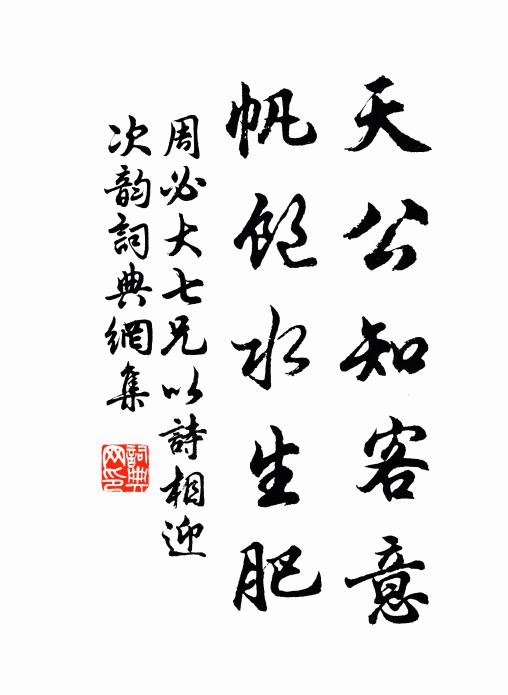 天公知客意
帆飽水生肥
周必大七兄以詩相迎
次韵詞典網集
詞典
网印